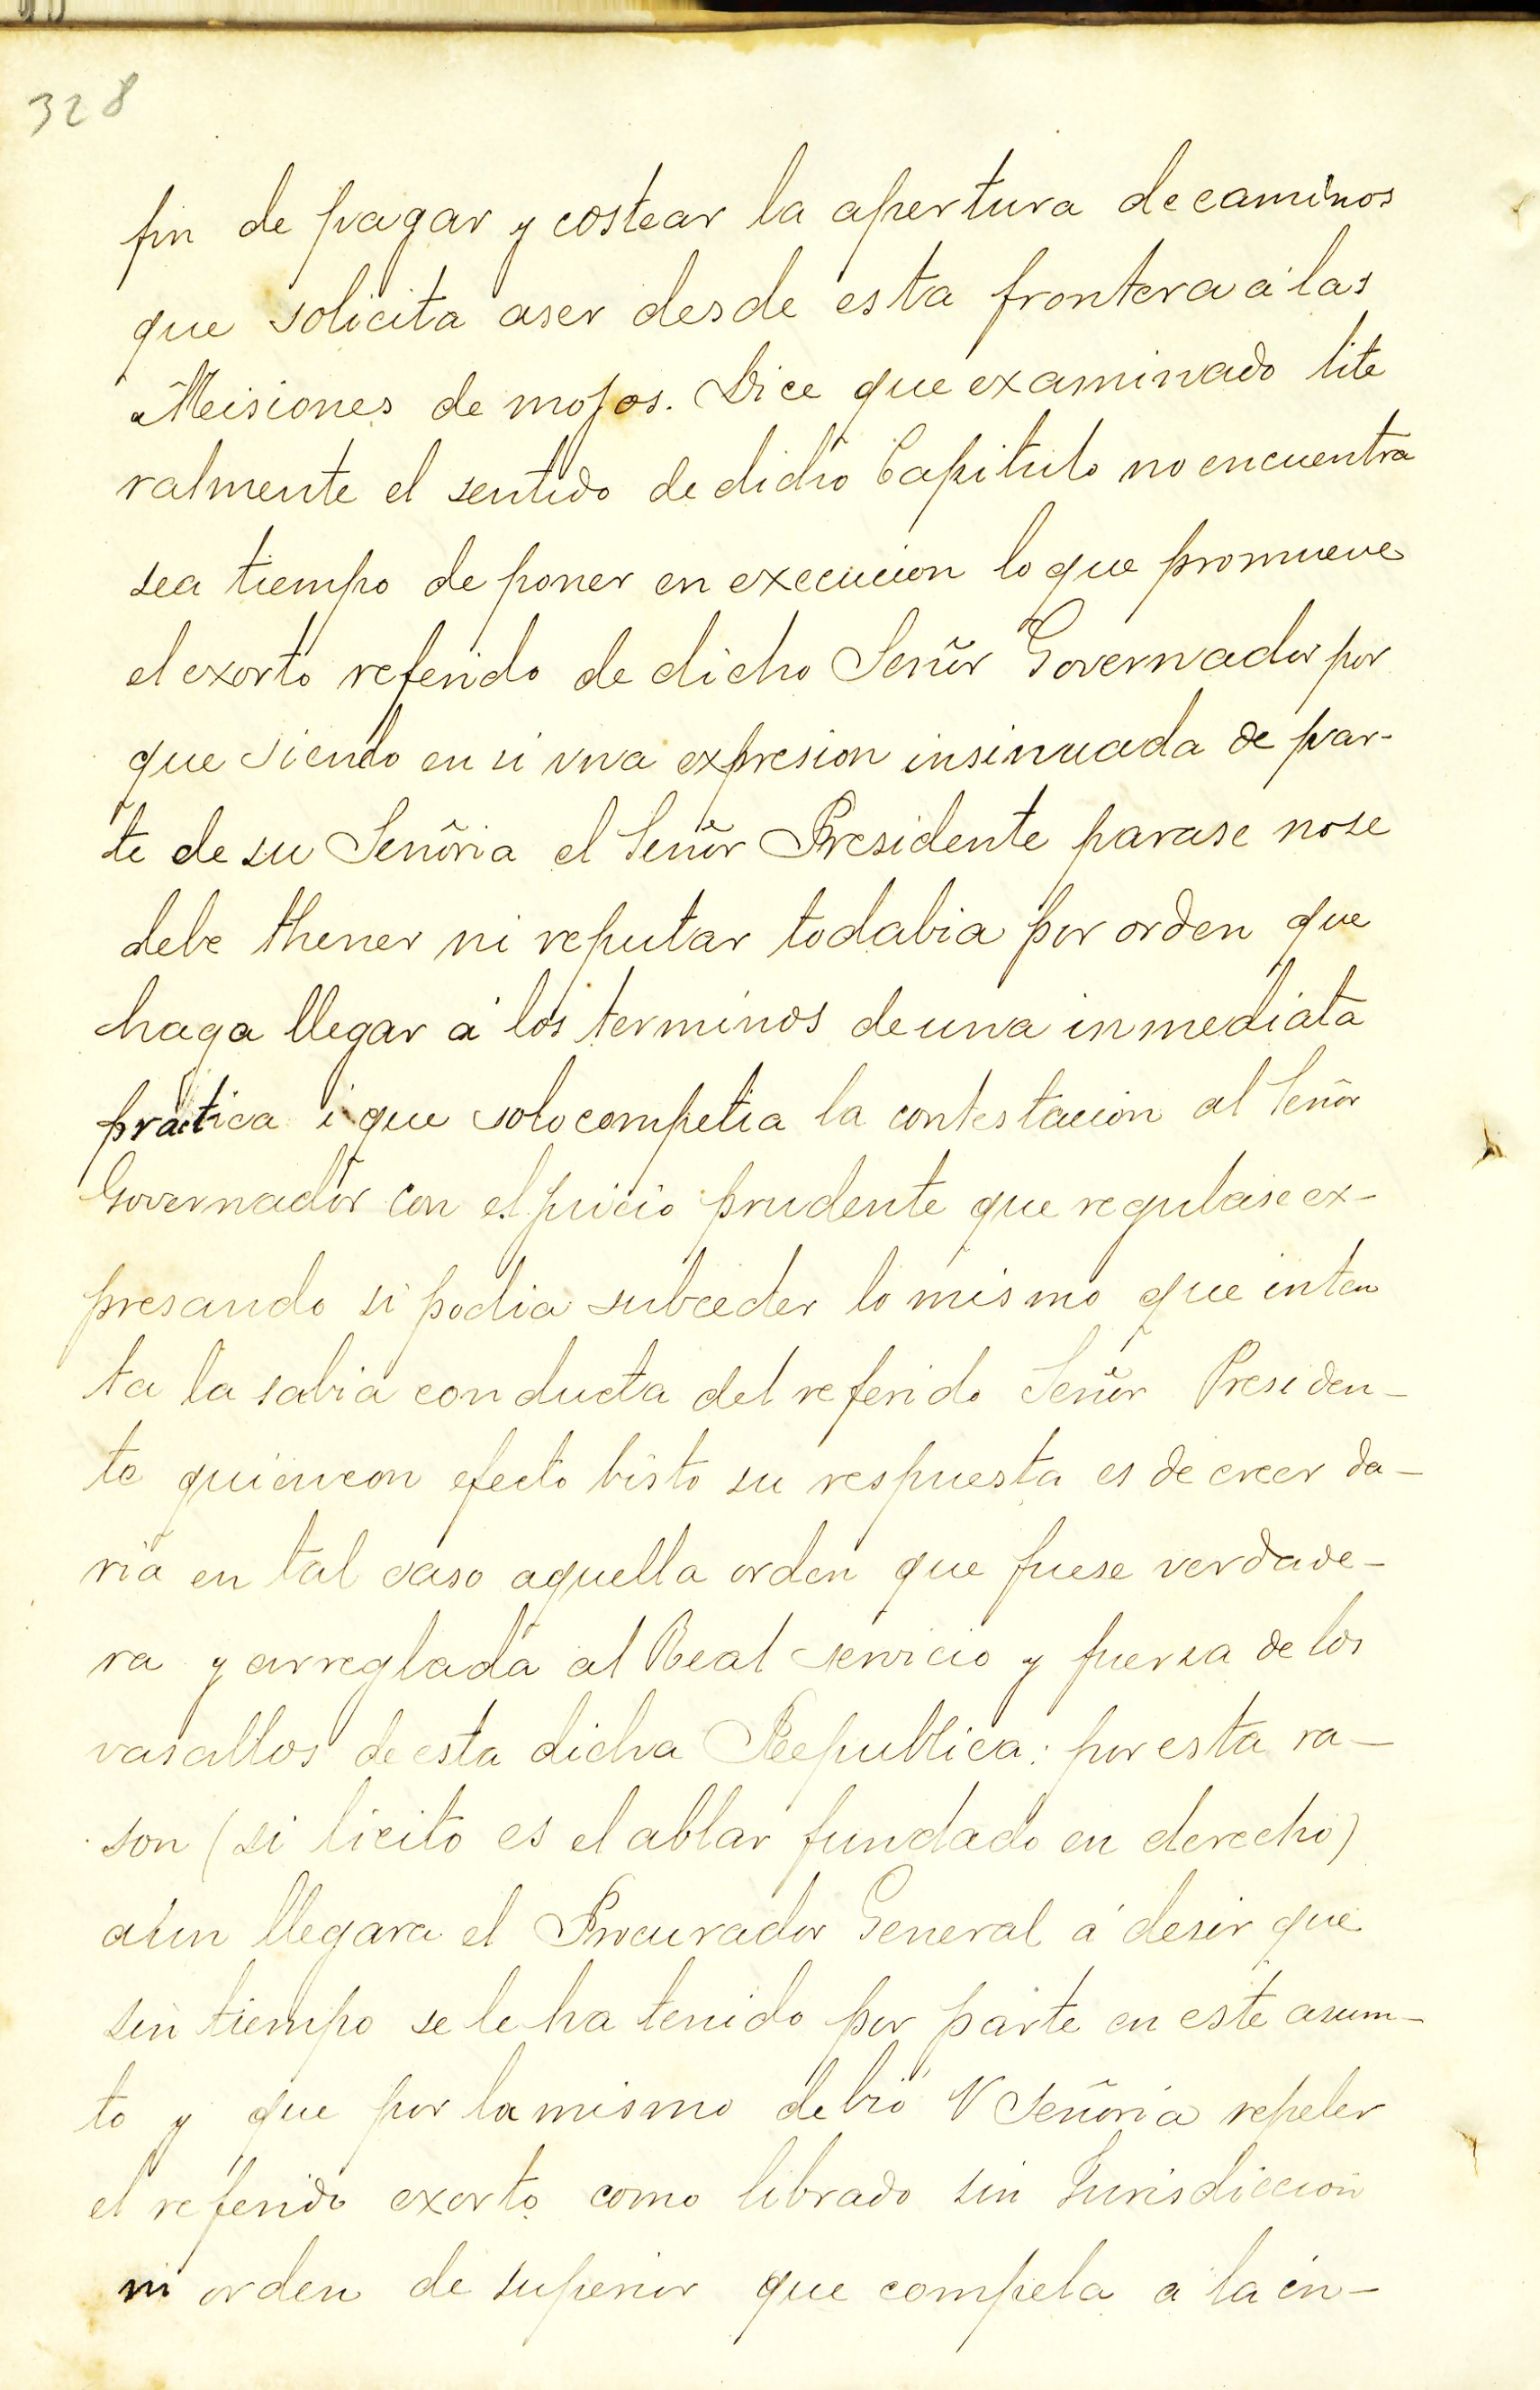 328
fin de pagar y costear la apertura de caminos
que solicita aser desde esta frontera á las
Meisiones de mojos. Dice que examinado lite
ralmente el sentido de dicho Capitulo no encuentra
sea tiempo de poner en execucion lo que promueve
el exorto referido de dicho Señor Governador por
que siendo en si una expresion insinuada de par-
te de su Señoria el Señor Presidente parase no se
debe thener ni reputar todabia por orden que
haga llegar á los terminos de una inmediata
práctica i que solo competia la contestacion al Señor
Governador con el juicio prudente que regulase ex-
presando si podia subceder lo mismo que inten
ta la sabia conducta del referido Señor Presiden-
te quien con efecto bisto su respuesta es de creer da-
ria en tal caso aquella orden que fuese verdade-
ra y arreglada al Real servicio y fuersa de los
vasallos de esta dicha Republica: por esta ra-
son (si licito es el ablar fundado en derecho)
aun llegara el Procurador General á desir que
sin tiempo se le ha tenido por parte en este asum-
to y que por lo mismo debió V Señoria repeler
el referido exorto como librado sin Jurisdiccion
ni orden de superior que compela a la in-